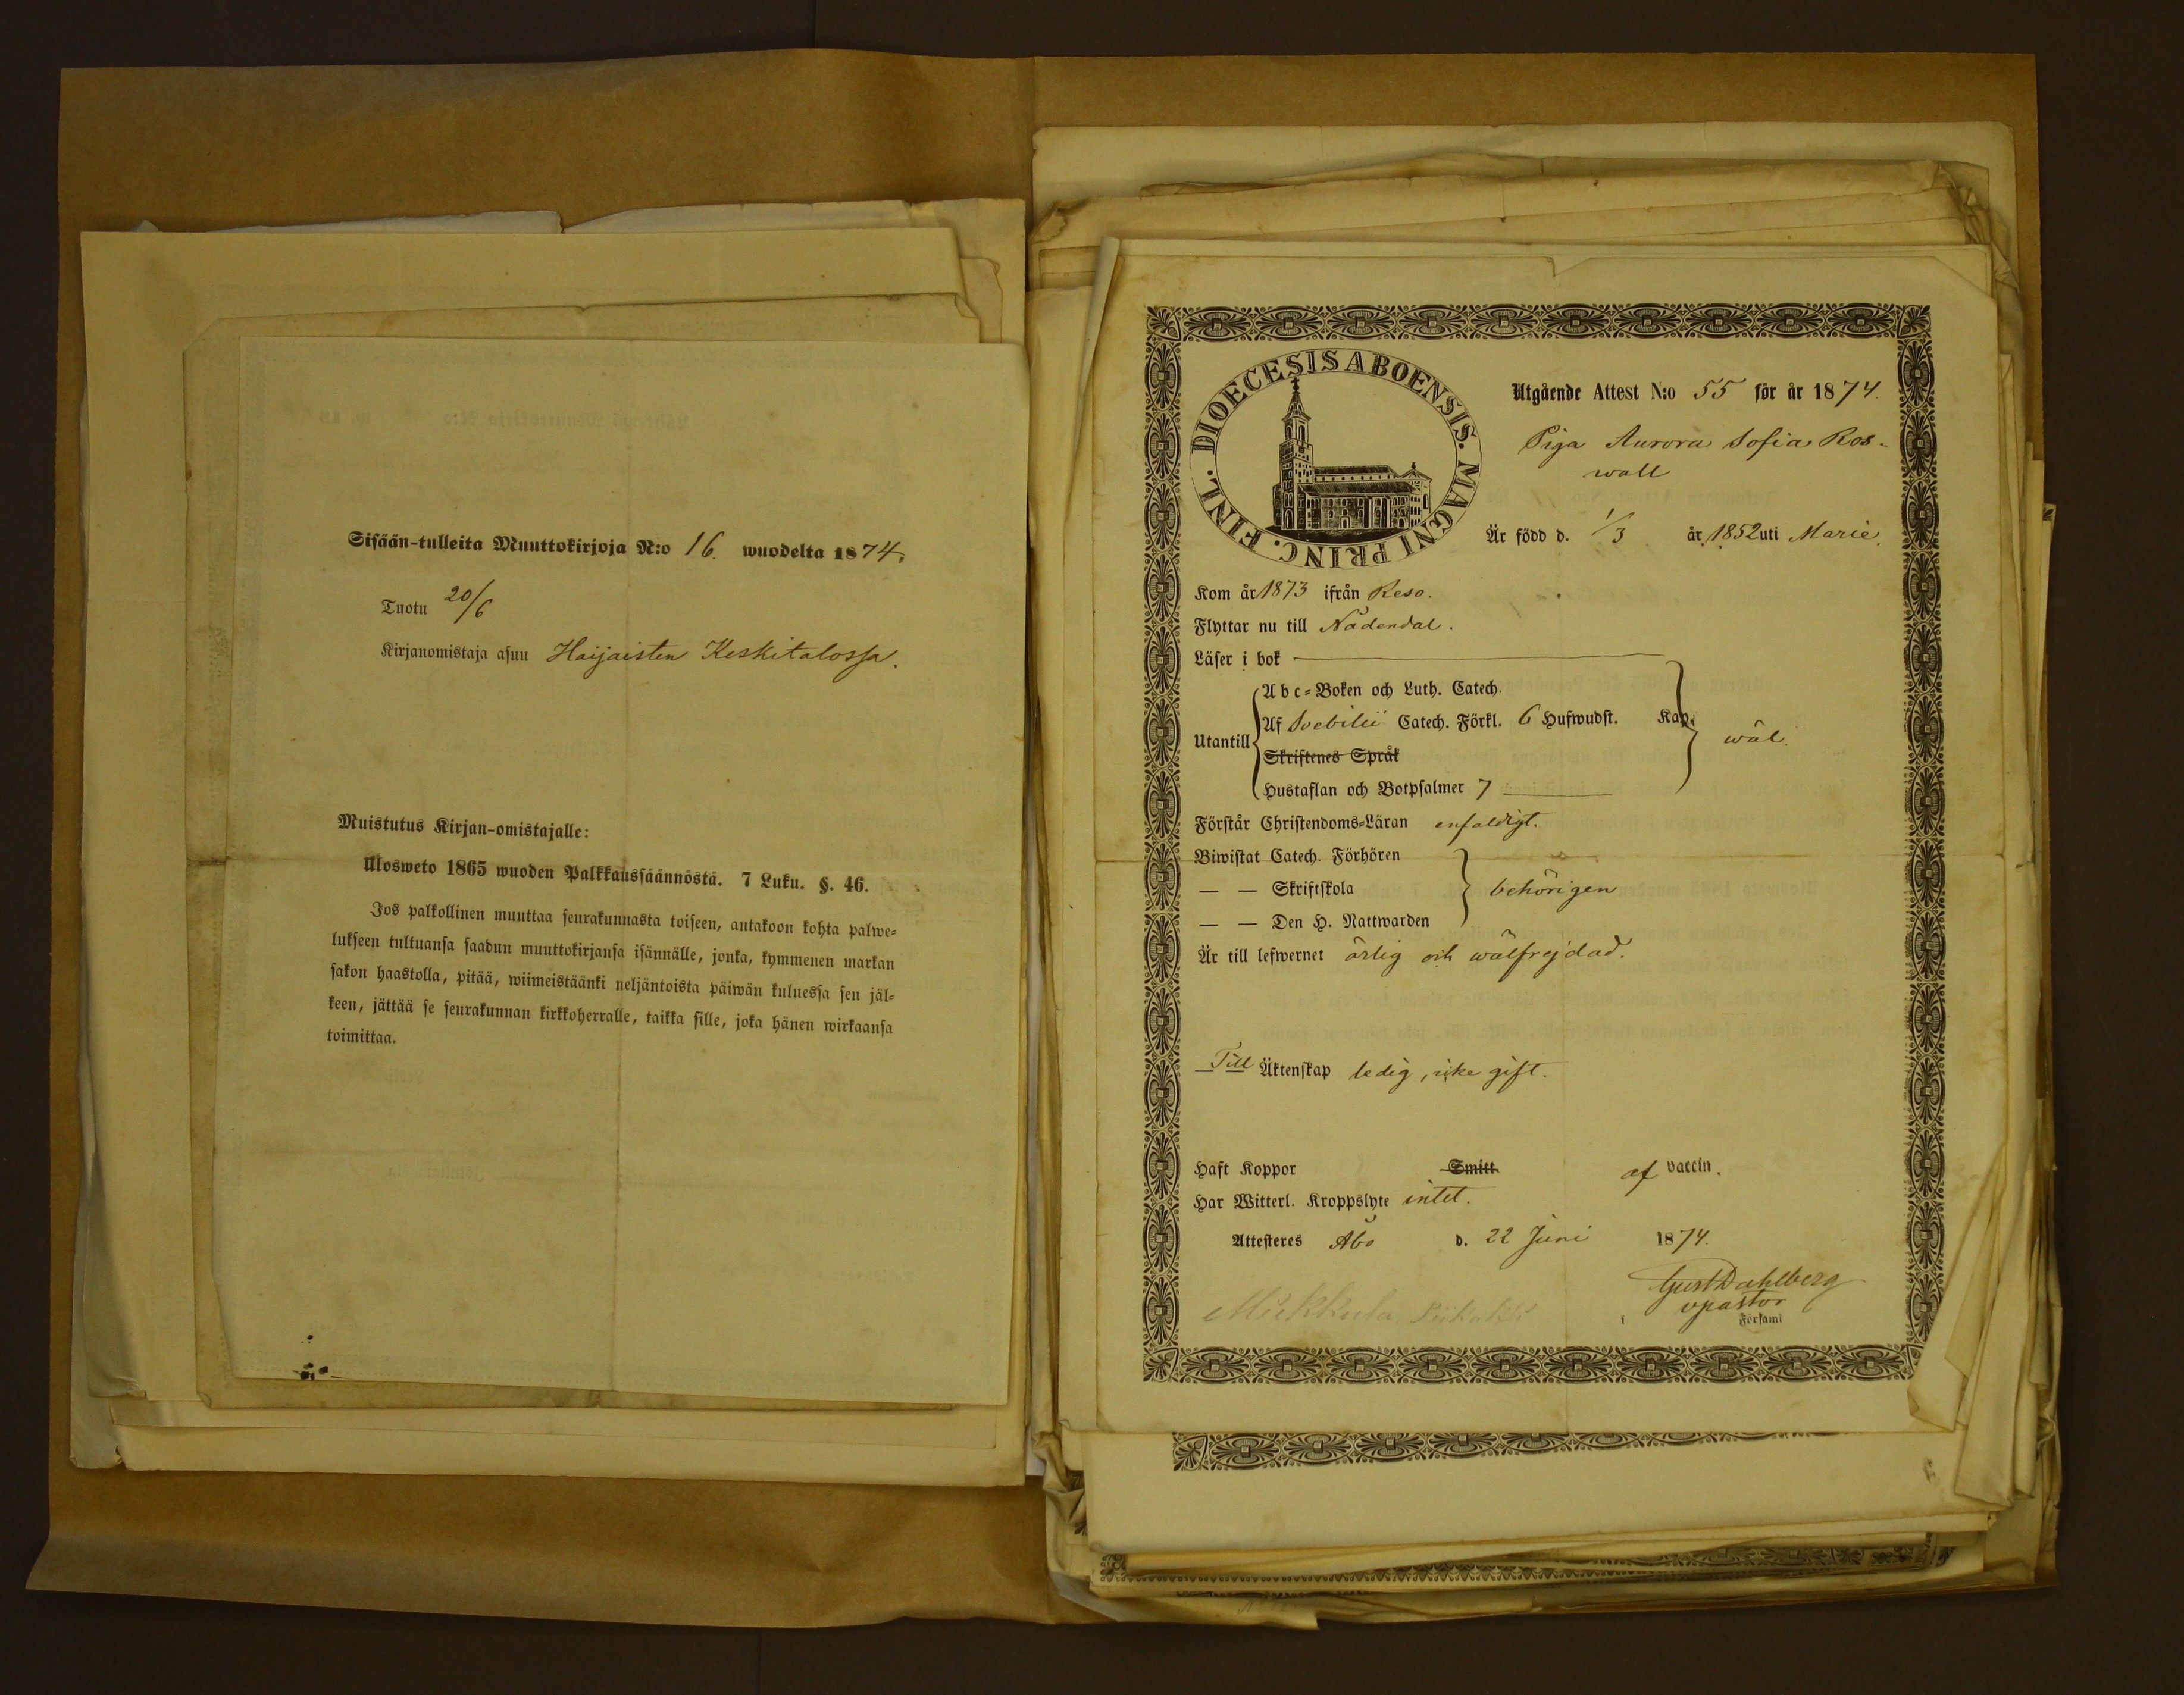 Sisään-tulleita Muuttokirjoja N:o 16. wuodelta 1874.
Tuotu 20/6
Kirjanomistaja asuu Haijaisten Keskitalossa.
Muistutus Kirjan-omistajalle:
Ulosweto 1865 wuoden Palkkaussäännöstä. 7 Luku. §. 46.
Jos palkollinen muuttaa seurakunnasta toiseen, antakoon kohta palwe-
lukseen tultuansa saadun muuttokirjansa isännälle, jonka, kymmenen markan
sakon haastolla, pitää, wiimeistäänki neljäntoista päiwän kuluessa sen jäl-
keen, jättää se seurakunnan kirkkoherralle, taikka sille, joka hänen wirkaansa
toimittaa.
DIOECESIS ABOENSIS. MAGNI PRINC. FINL.
Utgående Attest N:o 55 för år 1874.
Piga Aurora Sofia Ros-
wall
Är född d. 1/3 år 1852 uti Marie.
Kom år 1873 ifrån Reso.
Flyttar nu till Nådendal.
Läser i bok
Utantill
Abc-Boken och Luth. Catech.
Af Svebilii Catech. Förkl. 6 Hufwudst. Kap.
Skriftenes Språk
Hustaflan och Botpsalmer 7
wäl.
Förstår Christendoms-Läran enfaldigt.
Biwistat Catech. Förhören
— — Skriftskola behörigen
— — Den H. Nattwarden
Är till lefwernet ärlig och wälfrejdad.
Till Äktenskap ledig, icke gift.
Haft Koppor Smitt af vaccin.
Har Witterl. Kroppslyte intet.
Attesteres Åbo d. 22 Juni 1874.
Gust Dahlberg
vpastor
Församl